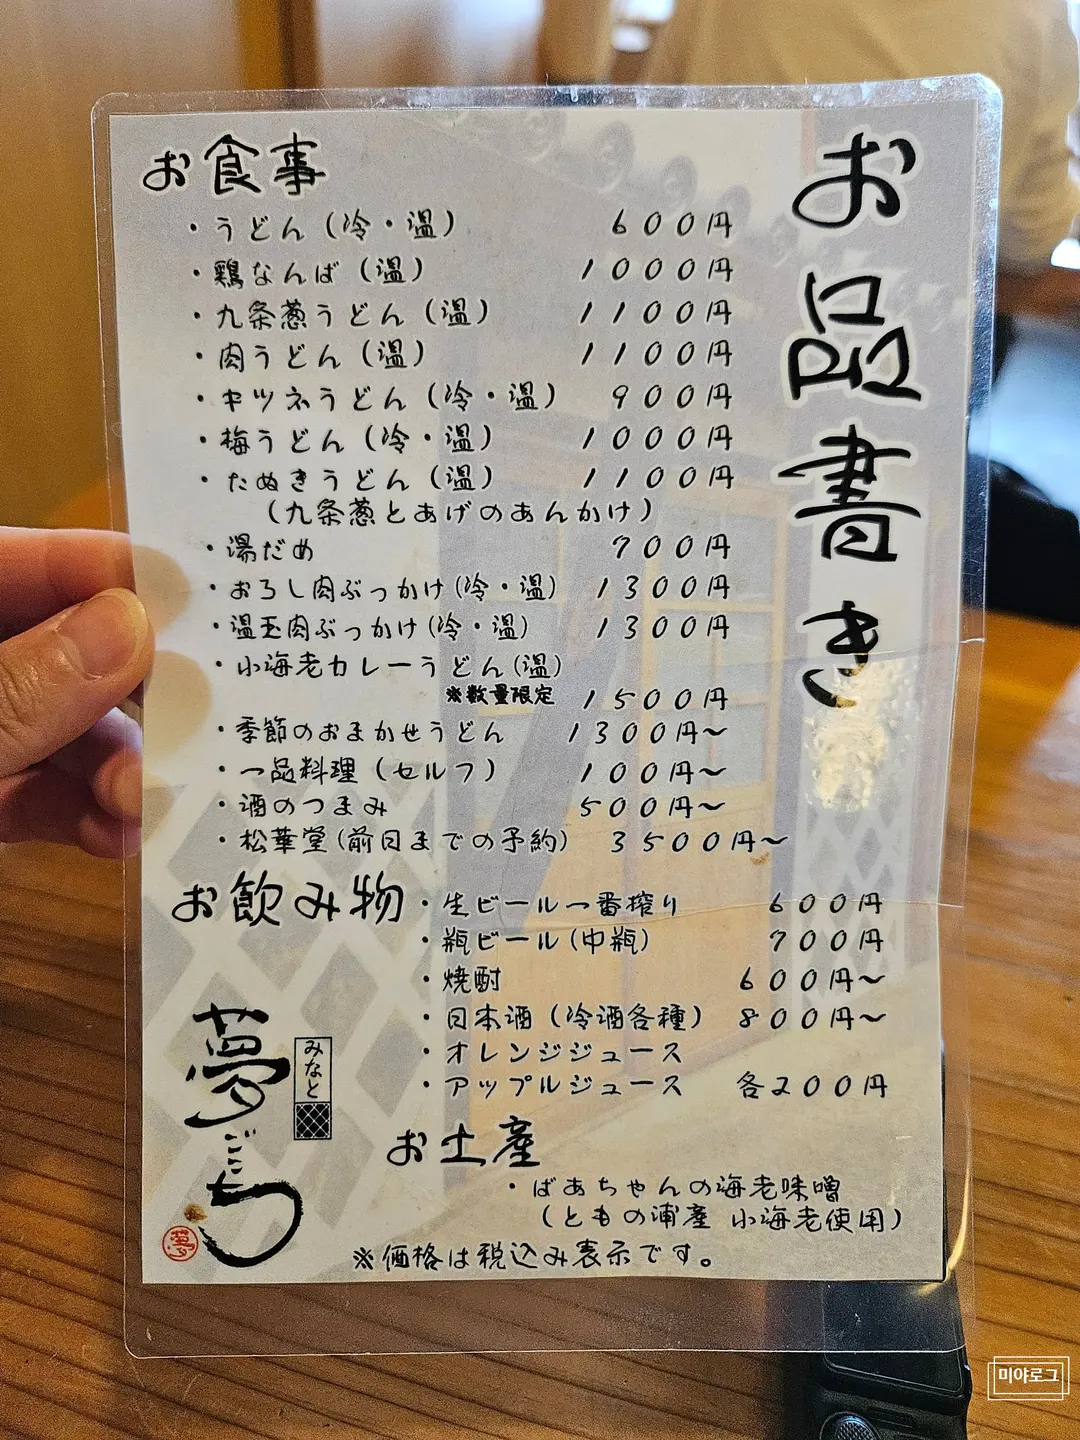 お品書き
お食事
・うどん（冷・温） 600円
・鶏なんば（温） 1000円
・九条葱うどん（温） 1100円
・肉うどん（温） 1100円
・キツネうどん（冷・温） 900円
・梅うどん（冷・温） 1000円
・たぬきうどん（温） 1100円
（九条葱とあげのあんかけ）
・湯だめ 700円
・おろし肉ぶっかけ（冷・温） 1300円
・温玉肉ぶっかけ（冷・温） 1300円
・小海老カレーうどん（温）
※数量限定 1500円
・季節のおまかせうどん 1300円～
・一品料理（セルフ） 100円～
・酒のつまみ 500円～
・松華堂（前日までの予約） 3500円～
お飲み物
・生ビール一番搾り 600円
・瓶ビール（中瓶） 700円
・焼酎 600円～
・日本酒（冷酒各種） 800円～
・オレンジジュース
・アップルジュース 各200円
夢ごこち
みなと
夢
お土産
・ばあちゃんの海老味噌
（ともの浦産 小海老使用）
※価格は税込み表示です。
미야로그